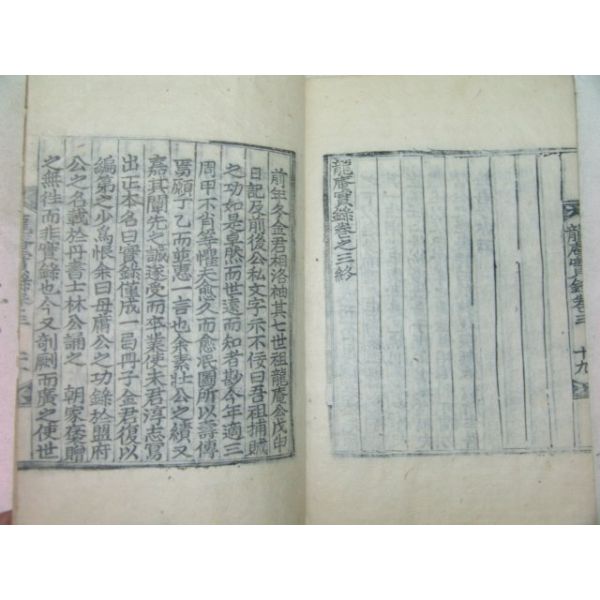 龍庵實錄卷之三終
龍庵實錄卷三 十九
前年冬金君相洛袖其七世祖龍庵公戊申
日記及前後公私文字示不佞曰吾祖捕賊
之功如是卓然而世遠而知者尠今年適三
周甲不肖等懼夫愈久而愈泯圖所以壽傳
焉願丁乙而並惠一言也余素壯公之績又
嘉其闡先之誠遂受而卒業使宋君淳志寫
出正本名曰實錄僅成一冊子金君復以
編第之少爲悵余曰毋庸公之功錄於盟府
公之名載於丹書士林公誦之 朝家褒贈
之無往而非實錄也今又剞劂而廣之使世